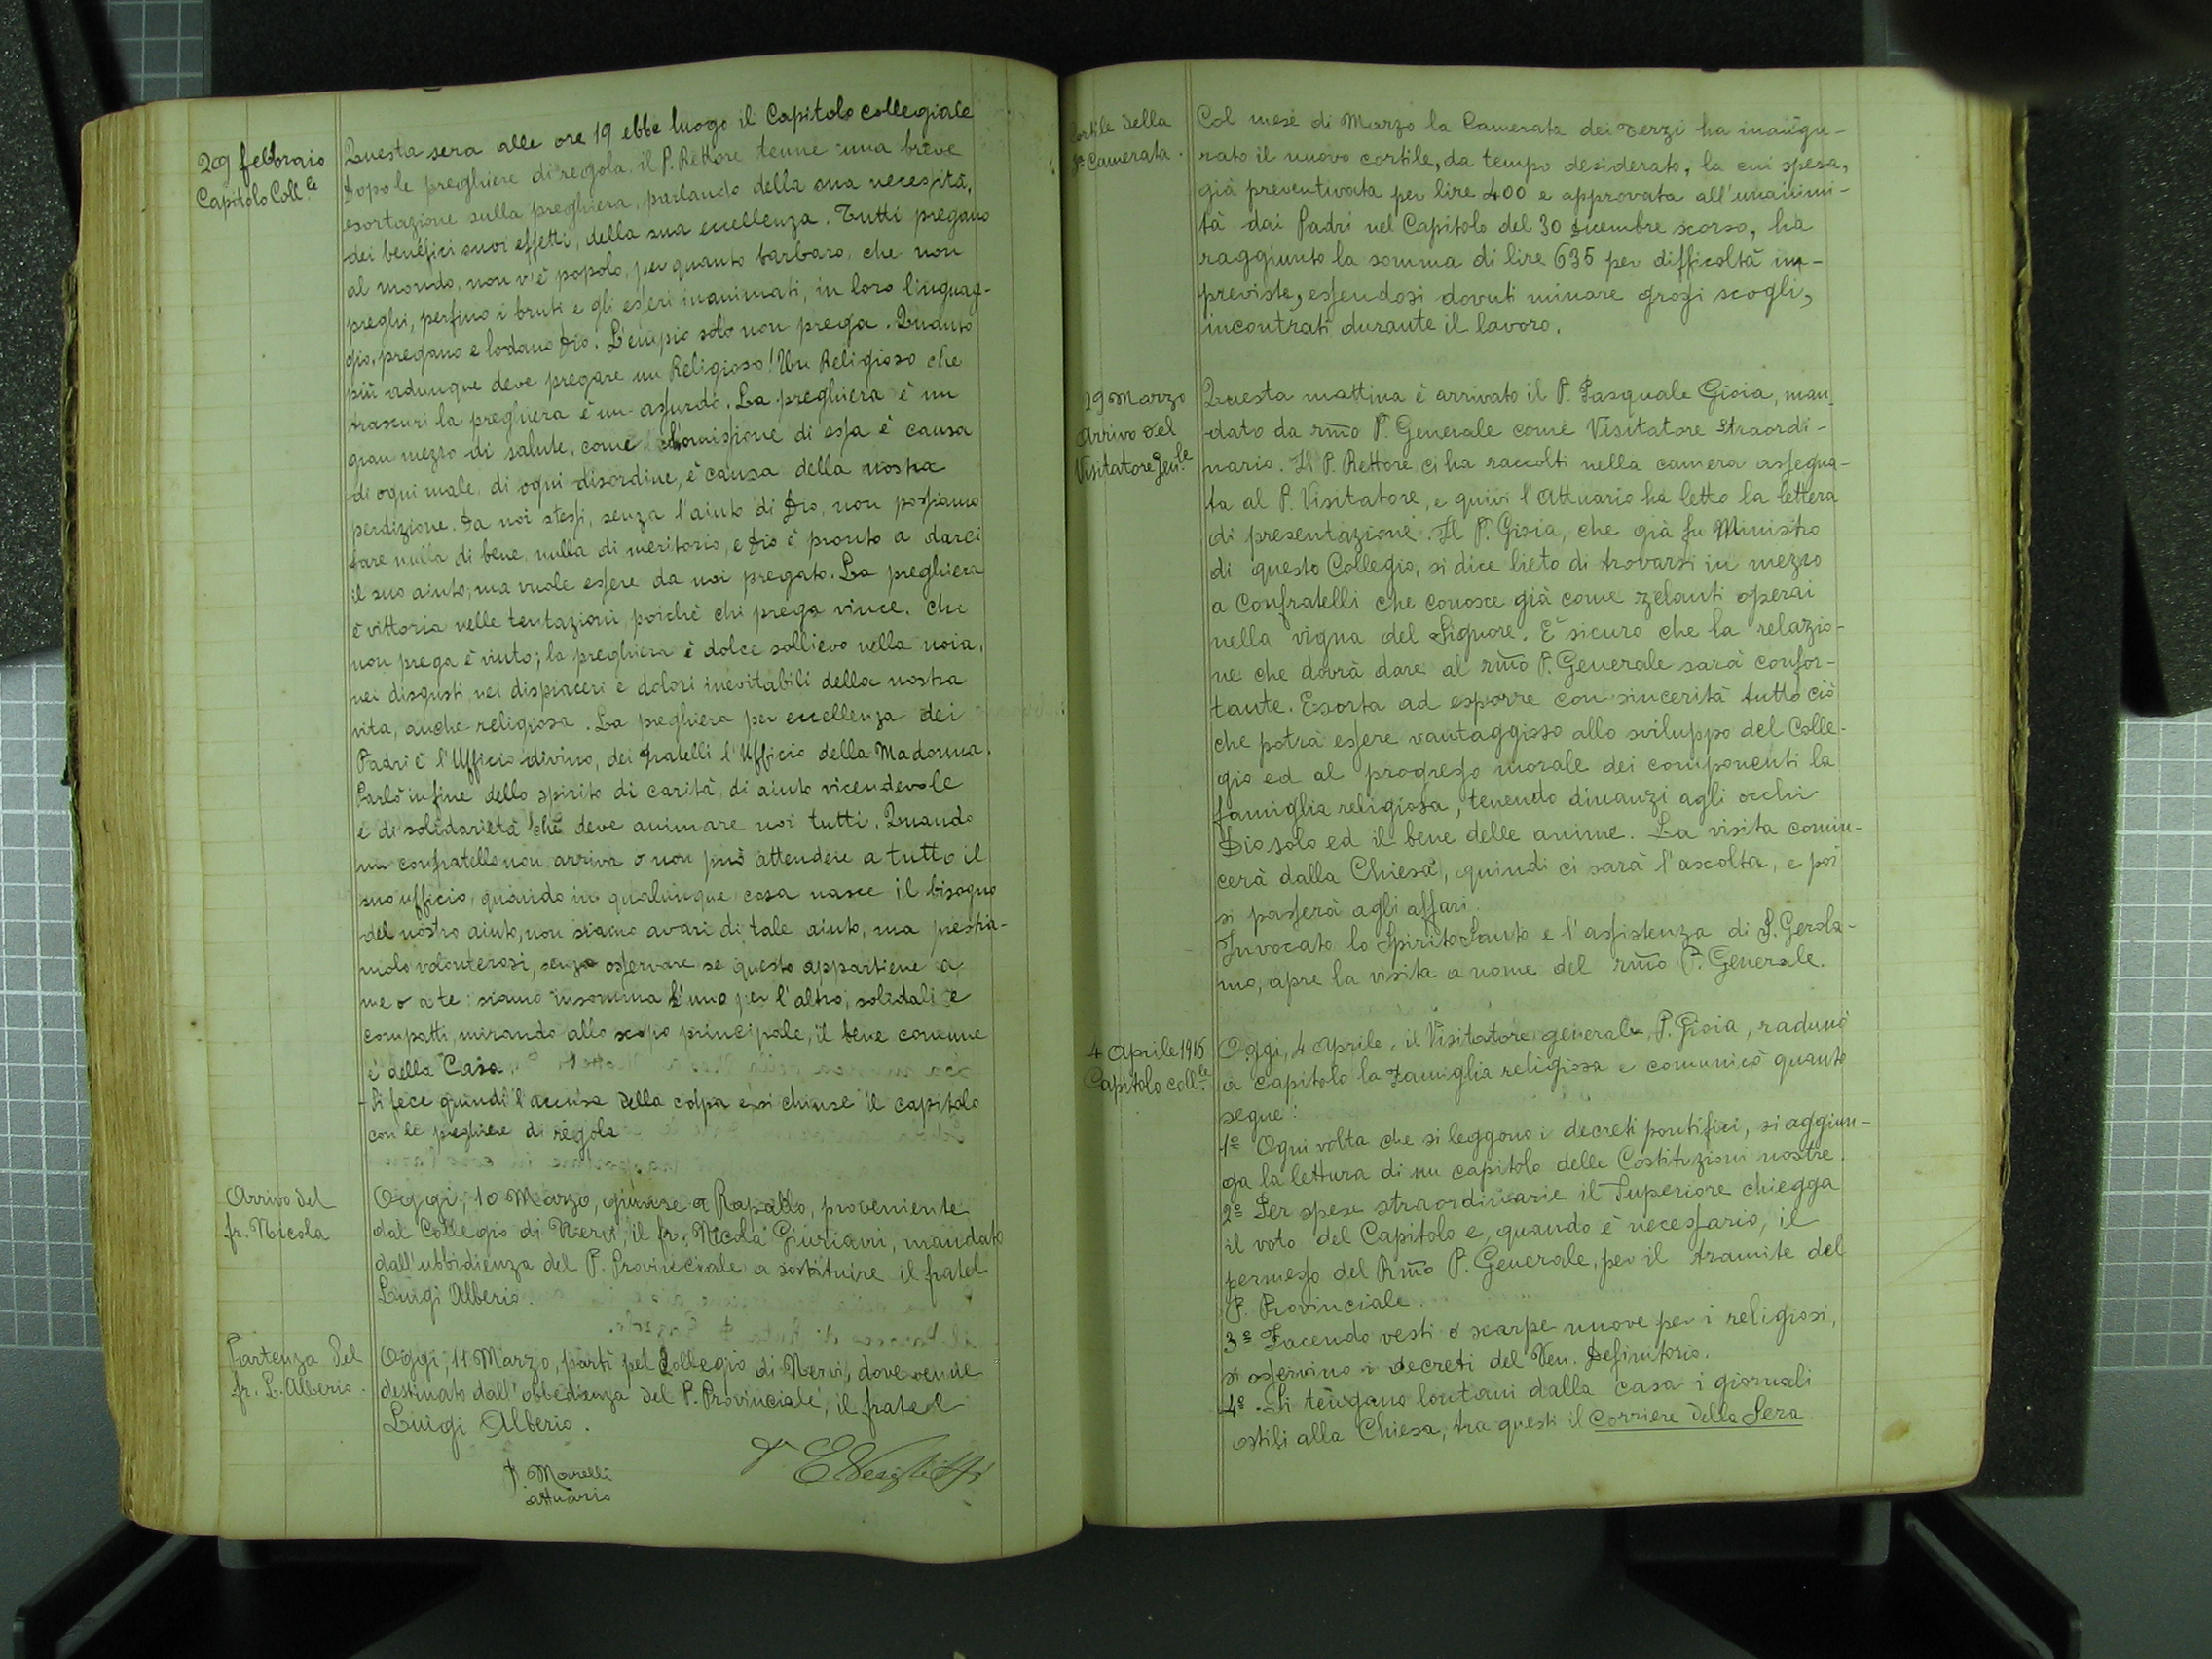 29 febbraio
Capitolo Coll.le
Questa sera alle ore 19 ebbe luogo il Capitolo collegiale
Dopo le preghiere di regola il P. Rettore tenne una breve
esortazione sulla preghiera, parlando della sua necessità,
dei benefici suoi effetti, della sua eccellenza. Tutti pregano
al mondo, non v'è popolo, per quanto barbaro, che non
preghi, perfino i bruti e gli esseri inanimati, in loro linguag-
gio, pregano e lodano Dio. L'empio solo non prega. Quanto
più adunque deve pregare un Religioso! Un Religioso che
trascuri la preghiera è un assurdo. La preghiera è un
gran mezzo di salute, come l'omissione di essa è causa
di ogni male, di ogni disordine, è causa della nostra
perdizione. Da noi stessi, senza l'aiuto di Dio, non possiamo
fare nulla di bene, nulla di meritorio, e Dio è pronto a darci
il suo aiuto, ma vuole essere da noi pregato. La preghiera
è vittoria nelle tentazioni, poichè chi prega vince, chi
non prega è vinto; la preghiera è dolce sollievo nella noia,
nei disgusti, nei dispiaceri e dolori inevitabili della nostra
vita, anche religiosa. La preghiera per eccellenza dei
Padri è l'Ufficio divino, dei fratelli l'Ufficio della Madonna.
Parlò infine dello spirito di carità, di aiuto vicendevole
e di solidarietà che deve animare noi tutti. Quando
un confratello non arriva o non può attendere a tutto il
suo ufficio, quando in qualunque cosa nasce il bisogno
del nostro aiuto, non siamo avari di tale aiuto, ma prestia-
molo volonterosi, senza osservare se questo appartiene a
me o a te: siamo insomma l'uno per l'altro, solidali e
compatti, mirando allo scopo principale, il bene comune
e della Casa.
Si fece quindi l'accusa della colpa e si chiuse il capitolo
con le preghiere di regola
Arrivo del
fr. Nicola
Oggi, 10 Marzo, giunse a Rapallo, proveniente
dal Collegio di Nervi, il fr. Nicola Giuriani, mandato
dall'ubbidienza del P. Provinciale a sostituire il fratel
Luigi Alberio.
Partenza del
fr. L. Alberio.
Oggi, 11 Marzo, partì pel Collegio di Nervi, dove venne
destinato dall'obbedienza del P. Provinciale, il fratel
Luigi Alberio.
P. Morelli
attuario
Cortile della
3a Camerata.
Col mese di Marzo la Camerata dei Terzi ha inaugu-
rato il nuovo cortile, da tempo desiderato, la cui spesa,
già preventivata per lire 400 e approvata all'unanimi-
tà dai Padri nel Capitolo del 30 dicembre scorso, ha
raggiunto la somma di lire 635 per difficoltà im-
previste, essendosi dovuti minare grossi scogli,
incontrati durante il lavoro.
29 Marzo
Arrivo del
Visitatore Gen.le
Questa mattina è arrivato il P. Pasquale Gioia, man-
dato da rmo P. Generale come Visitatore Straordi-
nario. Il P. Rettore ci ha raccolti nella camera assegna-
ta al P. Visitatore, e quivi l'Attuario ha letto la lettera
di presentazione. Il P. Gioia, che già fu Ministro
di questo Collegio, si dice lieto di trovarsi in mezzo
a Confratelli che conosce già come zelanti operai
nella vigna del Signore. E' sicuro che la relazio-
ne che dovrà dare al rmo P. Generale sarà confor-
tante. Esorta ad esporre con sincerità tutto ciò
che potrà essere vantaggioso allo sviluppo del Colle-
gio ed al progresso morale dei componenti la
famiglia religiosa, tenendo dinanzi agli occhi
Dio solo ed il bene delle anime. La visita comin-
cerà dalla Chiesa, quindi ci sarà l'ascolta, e poi
si passerà agli affari.
Invocato lo Spirito Santo e l'assistenza di S. Gerola-
mo, apre la visita a nome del rmo P. Generale.
4 Aprile 1916
Capitolo coll.le
Oggi, 4 Aprile, il Visitatore generale, P. Gioia, radunò
a capitolo la famiglia religiosa e comunicò quanto
segue:
1º Ogni volta che si leggono i decreti pontifici, si aggiun-
ga la lettura di un capitolo delle Costituzioni nostre.
2º Per spese straordinarie il Superiore chiegga
il voto del Capitolo e, quando è necessario, il
permesso del Rmo P. Generale, per il tramite del
P. Provinciale.
3º Facendo vesti o scarpe nuove per i religiosi,
si osservino i decreti del Ven. Definitorio.
4º. Si tengano lontani dalla casa i giornali
ostili alla Chiesa, tra questi il Corriere della Sera